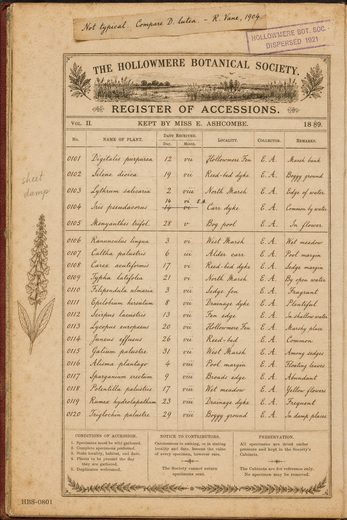 Not typical. Compare D. lutea. - R. Vane, 1904.
HOLLOWMERE BOT. SOC.
DISPERSED 1921
THE HOLLOWMERE BOTANICAL SOCIETY.
REGISTER OF ACCESSIONS.
VOL. II. KEPT BY MISS E. ASHCOMBE. 1889.
No. NAME OF PLANT. DATE RECEIVED. Day. Month. LOCALITY. COLLECTOR. REMARKS.
0101 Digitalis purpurea 12 vii Hollowmere Fen E. A. Marsh bank
0102 Silene dioica 19 vii Reed-bed dyke E. A. Boggy ground
0103 Lythrum salicaria 2 viii North Marsh E. A. Edge of water
14 vi E.A.
0104 Iris pseudacorus 14 vi Carr dyke E. A. Common by water
0105 Menyanthes trifol. 28 v Bog pool E. A. In flower
0106 Ranunculus lingua 3 vi West Marsh E. A. Wet meadow
0107 Caltha palustris 6 iii Alder carr E. A. Pool margin
0108 Carex acutiformis 17 vi Reed-bed dyke E. A. Sedge margin
0109 Typha latifolia 21 vi North Marsh E. A. By open water
0110 Filipendula ulmaria 3 vii Sedge fen E. A. Fragrant
0111 Epilobium hirsutum 8 vii Drainage dyke E. A. Plentiful
0112 Scirpus lacustris 13 vii Fen edge E. A. In shallow water
0113 Lycopus europaeus 20 vii Hollowmere Fen E. A. Marshy place
0114 Juncus effusus 26 vii Reed-bed E. A. Common
0115 Galium palustre 31 vii West Marsh E. A. Among sedges
0116 Alisma plantago 4 viii Pool margin E. A. Floating leaves
0117 Sparganium erectum 9 viii Broads edge E. A. Abundant
0118 Potentilla palustris 17 viii Wet meadow E. A. Yellow flowers
0119 Rumex hydrolapathum 23 viii Drainage dyke E. A. Frequent
0120 Triglochin palustre 29 viii Boggy ground E. A. In damp places
sheet
damp
CONDITIONS OF ACCESSION.
1. Specimens must be wild gathered.
2. Complete specimens preferred.
3. State locality, habitat, and date.
4. Plants to be pressed the day
they are gathered.
5. Duplicates welcomed.
NOTICE TO CONTRIBUTORS.
Carelessness in making, or in stating
locality and date, lessens the value
of every specimen, however rare.
The Society cannot return
specimens sent.
PRESERVATION.
All specimens are dried under
pressure and kept in the Society's
Cabinets.
The Cabinets are for reference only.
No specimen may be removed.
HBS-0801